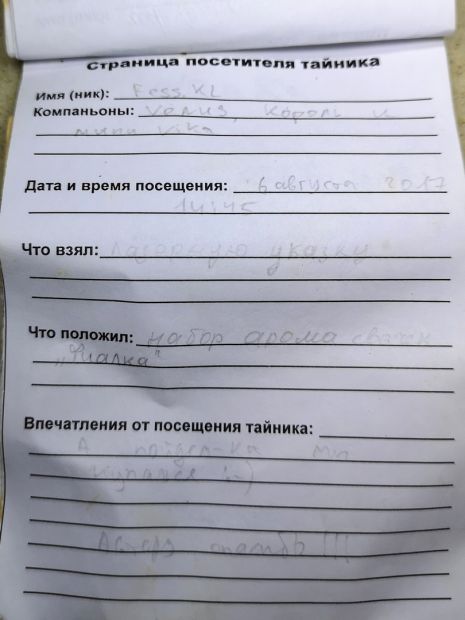 Страница посетителя тайника
Имя (ник): Fess.KL
Компаньоны: Venus, Король и
мини Vika
Дата и время посещения: 6 августа 2017
14:45
Что взял: лазерную указку
Что положил: набор арома свечек
„Фиалка"
Впечатления от посещения тайника:
А пойдем-ка мы
купаться :-)
Автору спасибо !!!